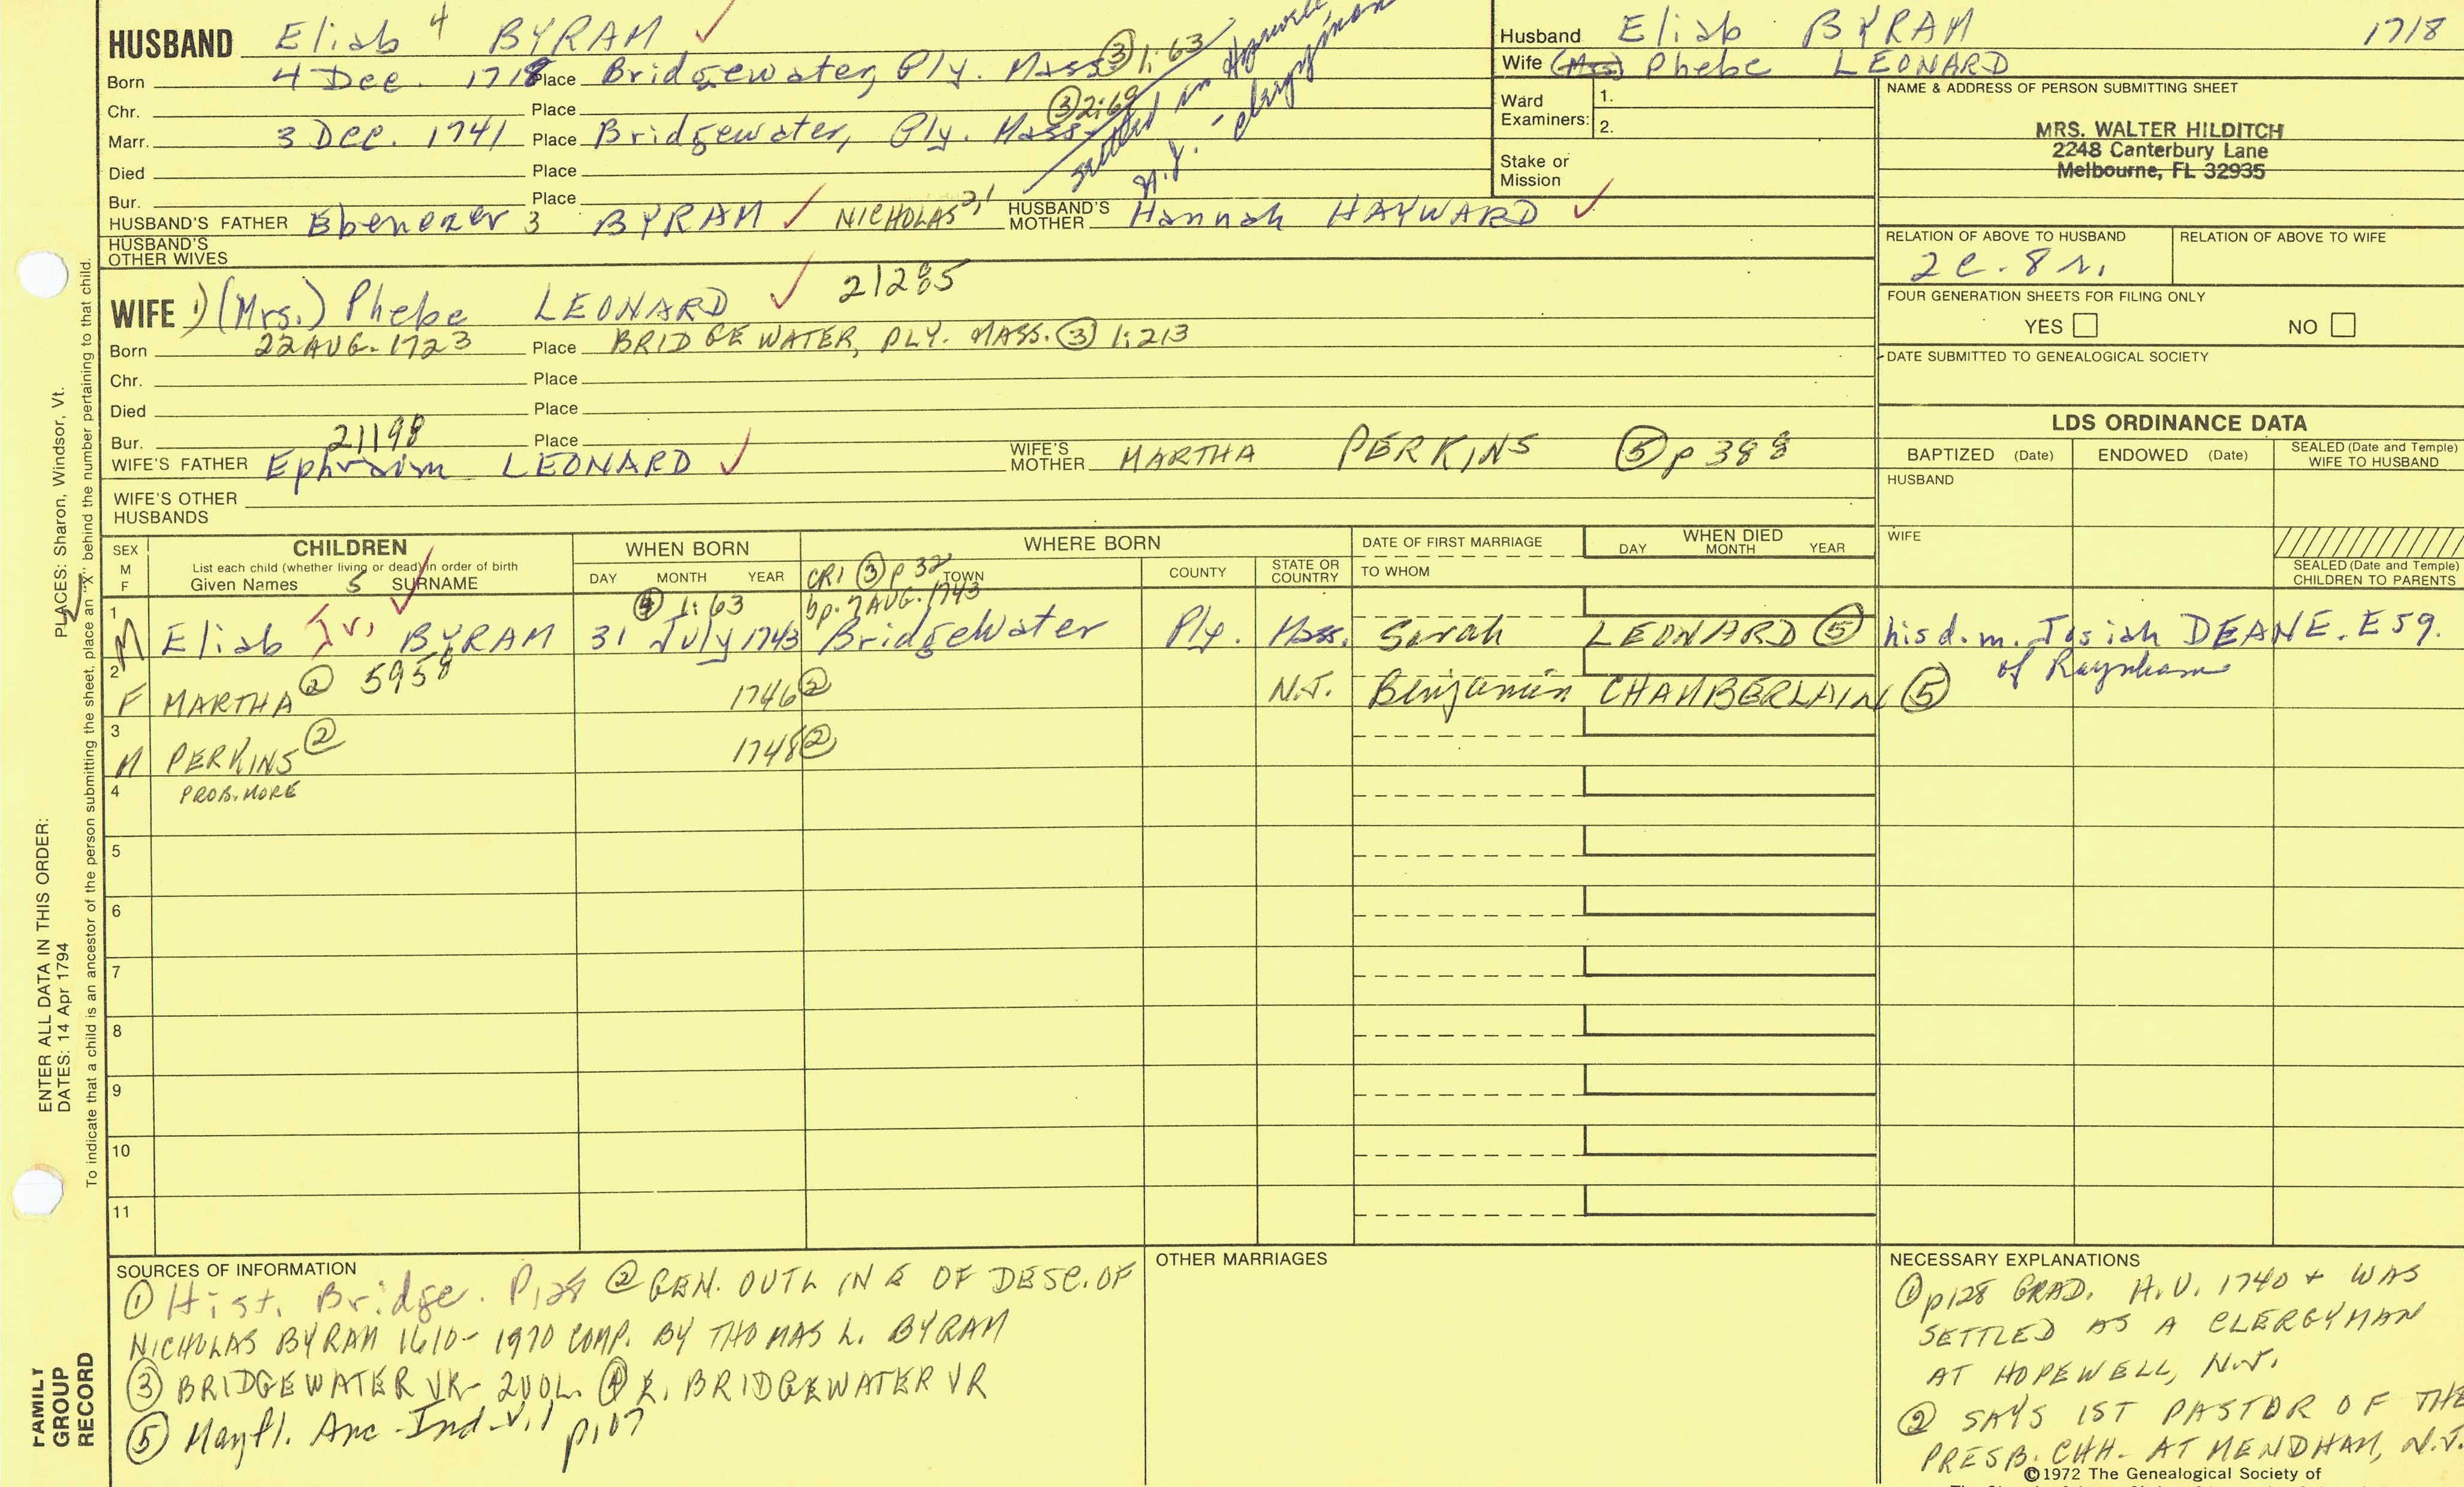 HUSBAND Eliab 4 BYRAM ✓
Born 4 Dec. 1718 Place Bridgewater, Ply. Mass ③ 1:63
Chr. Place
③ 2:69
Marr. 3 Dec. 1741 Place Bridgewater, Ply. Mass.
settled in Hopewell
N.J. - clergyman
Died Place
Bur. Place
HUSBAND'S FATHER Ebenezer 3 BYRAM ✓ NICHOLAS 2,1 HUSBAND'S MOTHER Hannah HAYWARD ✓
HUSBAND'S OTHER WIVES
WIFE 1) (Mrs.) Phebe LEONARD ✓ 21285
Born 22 AUG. 1723 Place BRIDGEWATER, PLY. MASS. ③ 1:213
Chr. Place
Died Place
Bur. 21198 Place
WIFE'S FATHER Ephraim LEONARD ✓ WIFE'S MOTHER MARTHA PERKINS ⑤ p 388
WIFE'S OTHER HUSBANDS
Husband Eliab BYRAM 1718
Wife (Mrs) Phebe LEONARD
Ward Examiners: 1.
2.
Stake or Mission
NAME & ADDRESS OF PERSON SUBMITTING SHEET
MRS. WALTER HILDITCH
2248 Canterbury Lane
Melbourne, FL 32935
RELATION OF ABOVE TO HUSBAND RELATION OF ABOVE TO WIFE
2 c. 8 r.
FOUR GENERATION SHEETS FOR FILING ONLY
YES NO
DATE SUBMITTED TO GENEALOGICAL SOCIETY
LDS ORDINANCE DATA
BAPTIZED (Date) ENDOWED (Date) SEALED (Date and Temple) WIFE TO HUSBAND
HUSBAND
WIFE
SEALED (Date and Temple) CHILDREN TO PARENTS
SEX M F
CHILDREN
List each child (whether living or dead) in order of birth
Given Names 5 SURNAME ✓
WHEN BORN
DAY MONTH YEAR
WHERE BORN
TOWN COUNTY STATE OR COUNTRY
DATE OF FIRST MARRIAGE
TO WHOM
WHEN DIED
DAY MONTH YEAR
CR1 ③ p 32
④ 1:63 bp. 7 AUG. 1743
1 M Eliab Jr. BYRAM 31 July 1743 Bridgewater Ply. Mass. Sarah LEONARD ⑤ his d. m. Josiah DEANE. Esq.
of Raynham
2 F MARTHA ② 5958 1746 ② N.J. Benjamin CHAMBERLAIN ⑤
3 M PERKINS ② 1748 ②
4 PROB. MORE
5
6
7
8
9
10
11
SOURCES OF INFORMATION
① Hist. Bridge. P128 ② GEN. OUTLINE OF DESC. OF
NICHOLAS BYRAM 1610-1970 COMP. BY THOMAS L. BYRAM
③ BRIDGEWATER VR- 2 VOL. ④ E. BRIDGEWATER VR
⑤ Mayfl. Anc - Ind - V.1 p107
OTHER MARRIAGES
NECESSARY EXPLANATIONS
① p128 GRAD. H.U. 1740 + WAS
SETTLED AS A CLERGYMAN
AT HOPEWELL, N.J.
② SAYS 1ST PASTOR OF THE
PRESB. CHH. AT MENDHAM, N.J.
©1972 The Genealogical Society of
PLACES: Sharon, Windsor, Vt.
ENTER ALL DATA IN THIS ORDER:
DATES: 14 Apr 1794
To indicate that a child is an ancestor of the person submitting the sheet, place an "X" behind the number pertaining to that child.
FAMILY
GROUP
RECORD